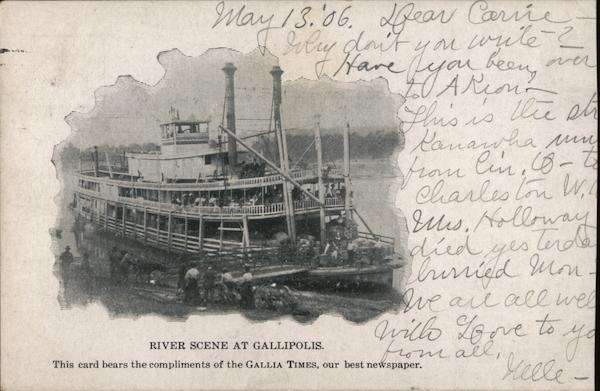 May 13.'06. Dear Carrie —
Why don't you write?
Have you been over
to Akron,
This is the str
Kanawha run
from Cin. O - to
Charleston W.
Mrs. Holloway
died yesterda
burried Mon-
We are all well
With Love to yo
from all,
RIVER SCENE AT GALLIPOLIS.
This card bears the compliments of the GALLIA TIMES, our best newspaper.